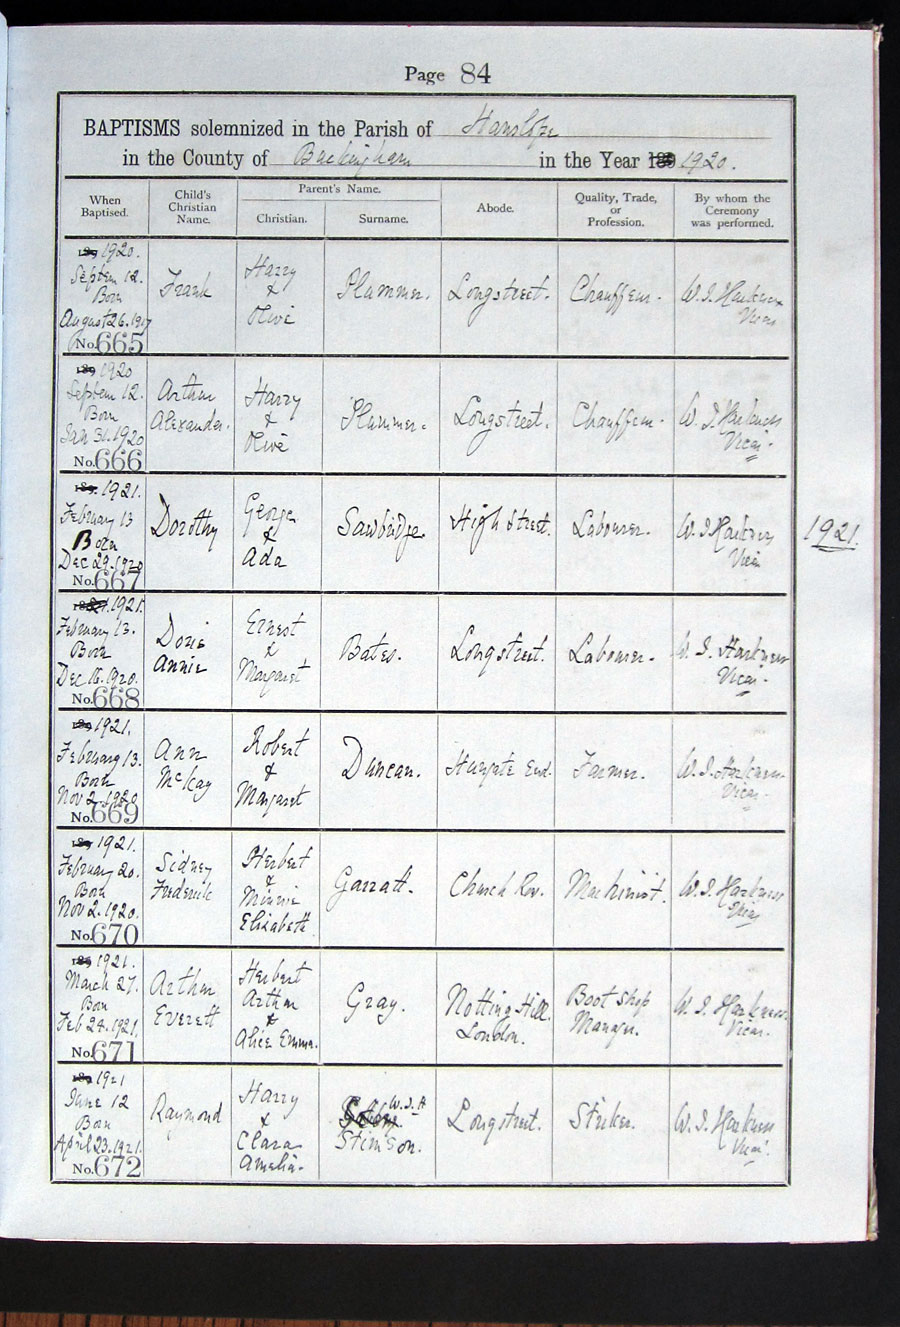 Page 84
BAPTISMS solemnized in the Parish of Hanslope
in the County of Buckingham in the Year 189 1920.
When Baptised. Child's Christian Name. Parent's Name. Christian. Surname. Abode. Quality, Trade, or Profession. By whom the Ceremony was performed.
189 1920.
Septem 12.
Born
August 26. 1917
No. 665
Frank
Harry
&
Olive
Plummer.
Longstreet.
Chauffeur.
W. J. Harkness
Vicar
189 1920
Septem 12.
Born
Jan 31. 1920
No. 666
Arthur
Alexander.
Harry
&
Olive
Plummer.
Longstreet.
Chauffeur.
W. J. Harkness
Vicar.
189. 1921.
February 13
Born
Dec 29. 1920
No. 667
Dorothy
George
&
Ada
Sawbridge
High Street.
Labourer.
W. J Harkness
Vicar
1921.
1921.
February 13.
Born
Dec 16. 1920.
No. 668
Doris
Annie
Ernest
&
Margaret
Bates.
Longstreet.
Labourer.
W. J. Harkness
Vicar.
189 1921.
February 13.
Born
Nov 2. 1920
No. 669
Ann
McKay
Robert
&
Margaret
Duncan.
Hungate End.
Farmer.
W. J. Harkness
Vicar.
189 1921.
February 20.
Born
Nov 2. 1920.
No. 670
Sidney
Frederick
Herbert
&
Minnie
Elizabeth
Garratt.
Church Row.
Machinist.
W. J. Harkness
Vicar
189 1921.
March 27.
Born
Feb 24. 1921.
No. 671
Arthur
Everett
Herbert
Arthur
&
Alice Emma.
Gray.
Notting Hill.
London.
Boot Shop
Manager.
W. J. Harkness.
Vicar.
189 1921
June 12
Born
April 23. 1921.
No. 672
Raymond
Harry
&
Clara
Amelia.
W. J. H
Stimson.
Longstreet.
Striker.
W. J. Harkness
Vicar.